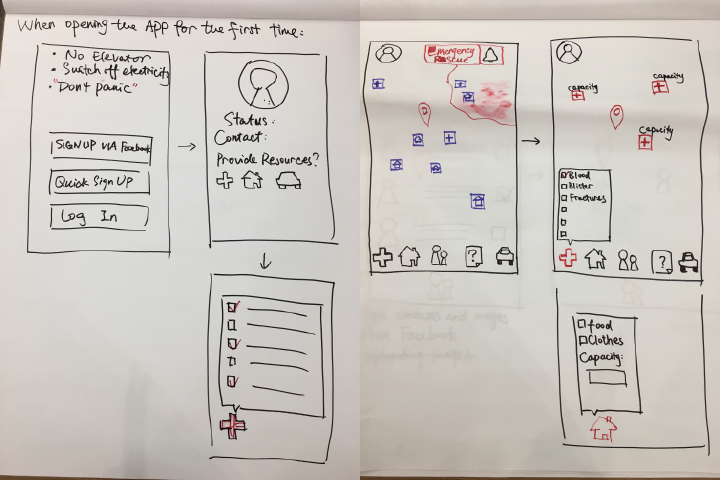 When opening the APP for the first time:
• No Elevator
• Switch off electricity
• "Don't panic"
SIGN UP VIA Facebook
Quick Sign UP
Log In
Status:
Contact:
Provide Resources?
Emergency
Rescue
?
capacity
capacity
capacity
Blood
Blister
Fractures
?
food
Clothes
Capacity: